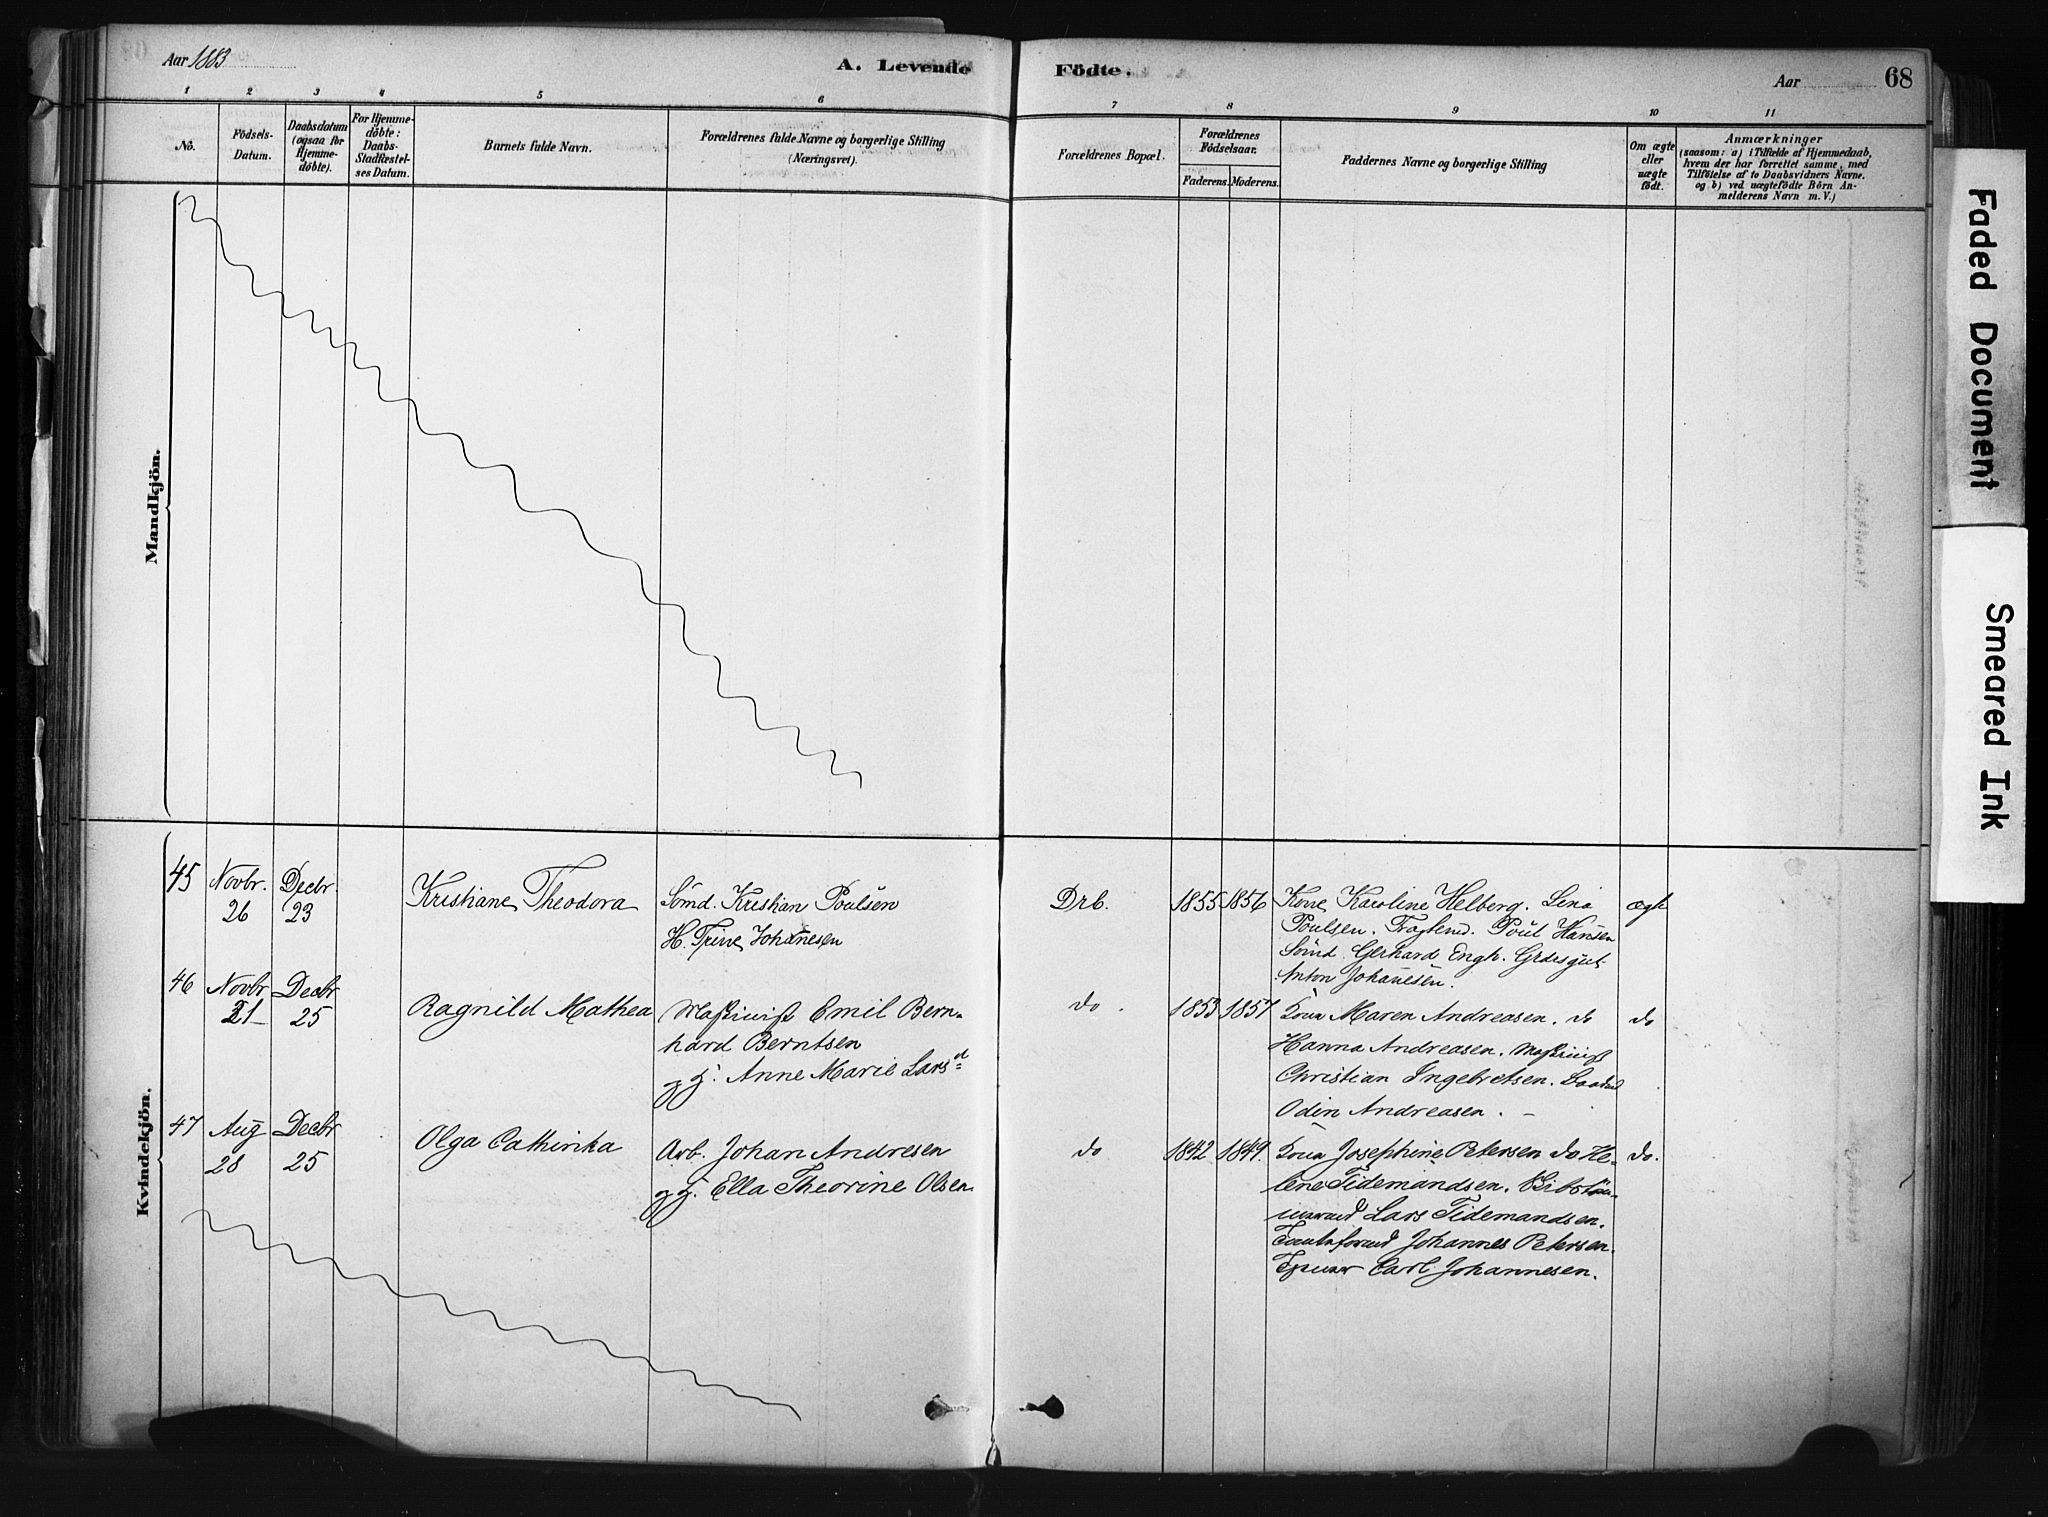 Aar 1883
A. Levende
Födte.
Aar
68
1 2 3 4 5 6 7 8 9 10 11
No.
Födsels-
Datum.
Daabsdatum
(ogsaa for
Hjemme-
döbte).
For Hjemme-
döbte:
Daabs-
Stadfæstel-
ses Datum.
Barnets fulde Navn.
Forældrenes fulde Navne og borgerlige Stilling
(Næringsvei).
Forældrenes Bopæl.
Forældrenes
Födselsaar.
Faderens. Moderens.
Faddernes Navne og borgerlige Stilling
Om ægte
eller
uægte
födt.
Anmærkninger
(saasom: a) i Tilfælde af Hjemmedaab,
hvem der har forrettet samme, med
Tilföielse af to Daabsvidners Navne.
og b) ved uægtefödte Börn An-
melderens Navn m.V.)
Mandkjön.
Kvindekjön.
45
Novbr.
26
Decbr.
23
Kristiane Theodora
Sömd. Kristian Poulsen
H. Trine Johannesen
Drb.
1855 1856
Kone Karoline Helberg. Lina
Poulsen. Poul Hansen
Sömd. Gerhard Engh.
Anton Johannesen.
ægte
46
Novbr
21
Decbr
25
Ragnild Mathea
Maskinist Emil Bern-
hard Berntsen
og H. Anne Marie Larsd
do.
1853 1857
Kone Maren Andreasen. do
Hanna Andreasen. Maskinist
Christian Ingebretsen.
Odin Andreasen.
do
47
Aug
28
Decbr
25
Olga Cathinka
Arb. Johan Andresen
og H. Ella Theorine Olsen
do
1842 1849.
Kone Josephine Petersen do He-
lene Tidemandsen.
Lars Tidemandsen.
Johannes Petersen.
Carl Johannesen.
do.
Faded Document
Smeared Ink